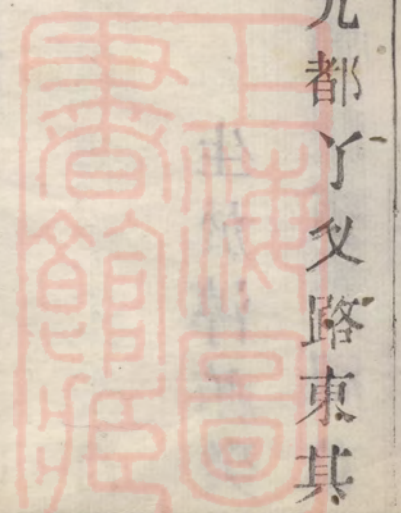 都丫叉路東其
上海圖
書館藏